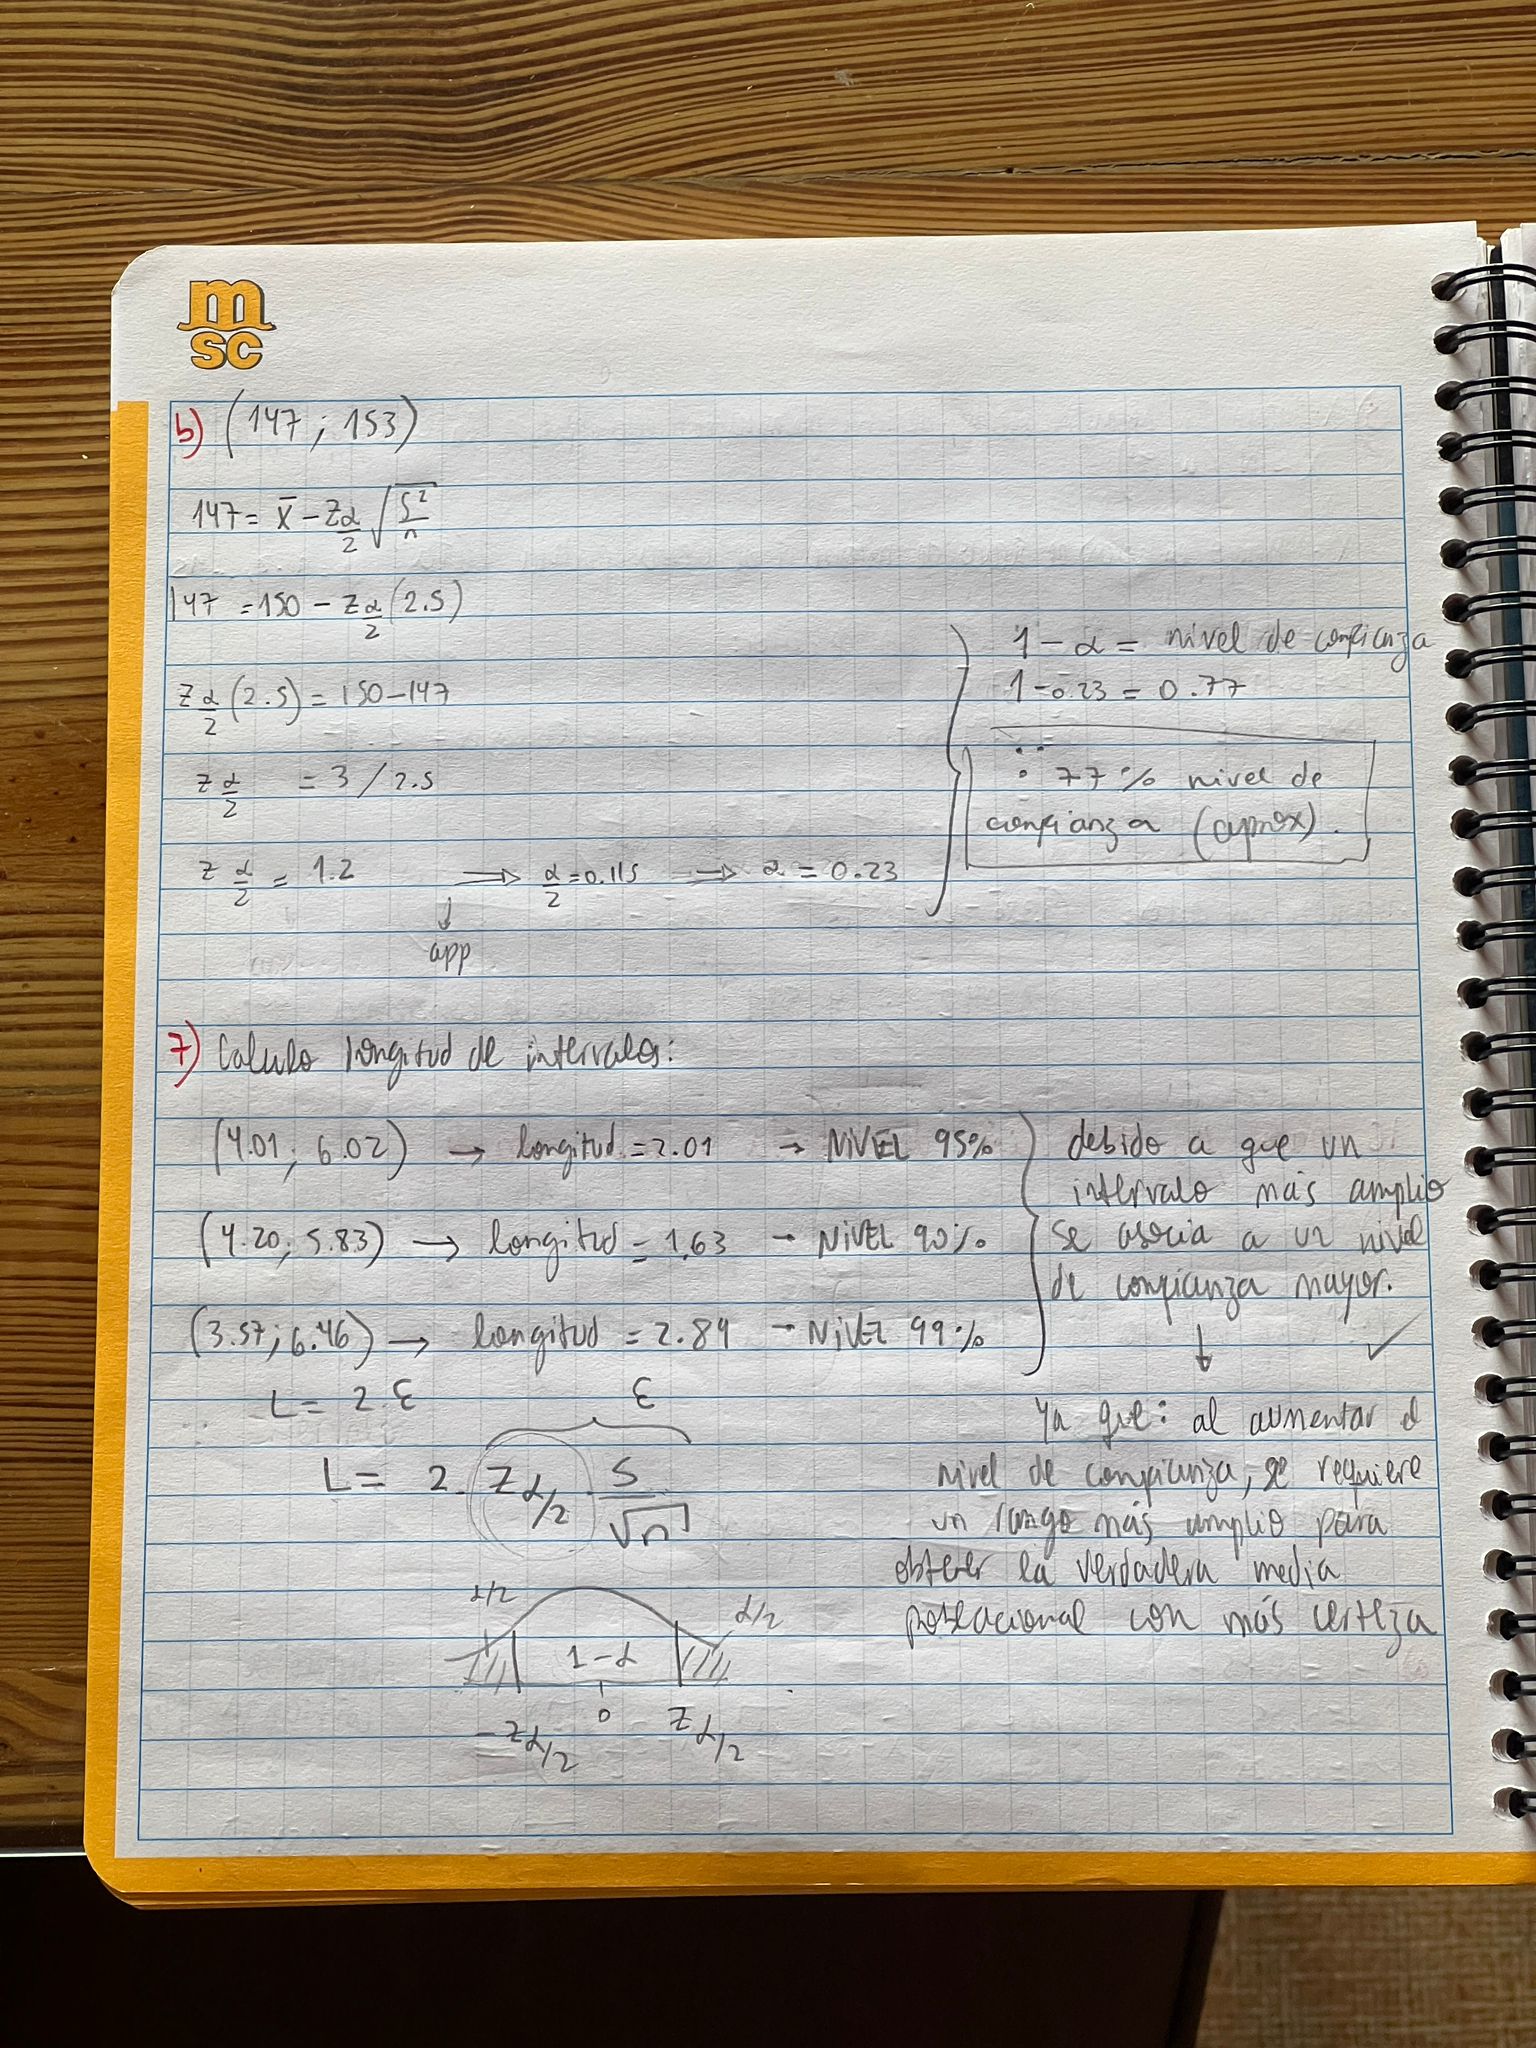 msc
b) (147 ; 153)
147 = x̄ - zα/2 √(S²/n)
147 = 150 - zα/2 (2.5)
zα/2 (2.5) = 150 - 147
zα/2 = 3 / 2.5
zα/2 = 1.2 ⟹ α/2 = 0.115 ⟹ α = 0.23
↓
app
1 - α = nivel de confianza
1 - 0.23 = 0.77
∴ 77% nivel de
confianza (aprox).
7) Calculo longitud de intervalos:
(4.01 ; 6.02) → longitud = 2.01 → NIVEL 95%
(4.20 ; 5.83) → longitud = 1,63 → NIVEL 90%
(3.57 ; 6.46) → longitud = 2.89 → NIVEL 99%
debido a que un
intervalo más amplio
se asocia a un nivel
de confianza mayor.
↓ ✓
Ya que: al aumentar el
nivel de confianza, se requiere
un rango más amplio para
obtener la verdadera media
poblacional con más certeza
L = 2.ε
ε
L = 2. Zα/2 . S/√n
α/2 α/2
1-α
-Zα/2 0 Zα/2